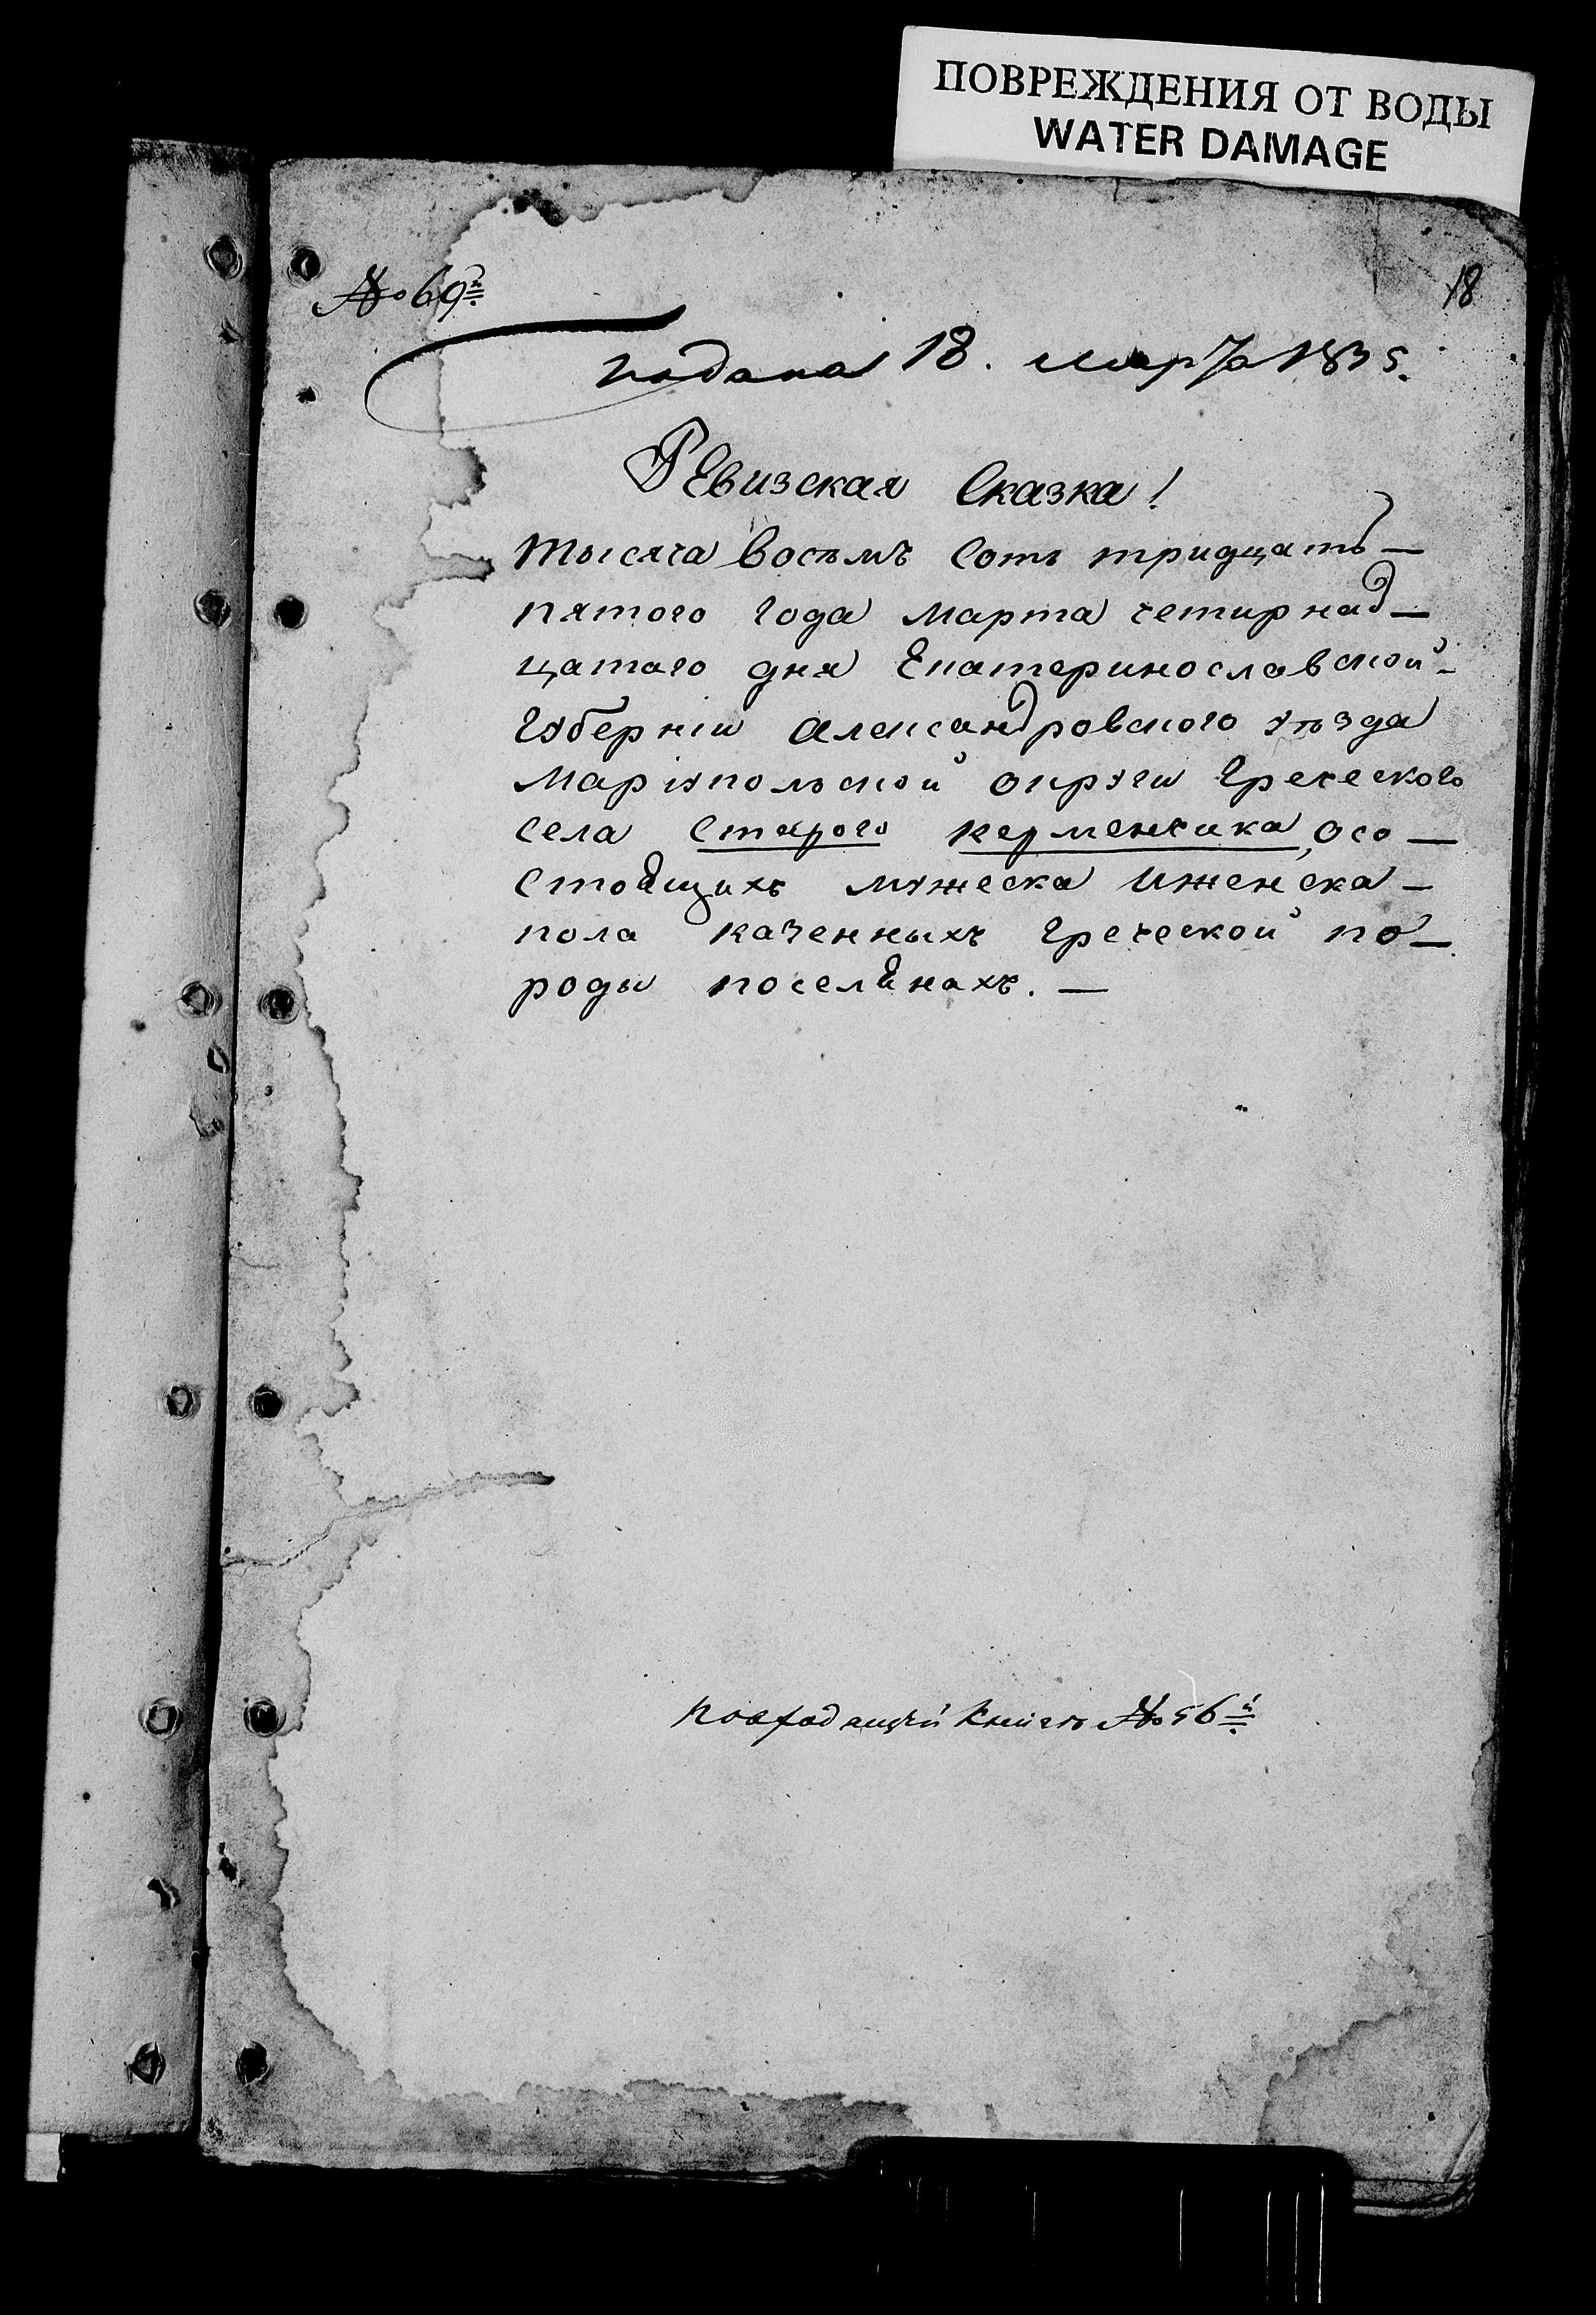 ПОВРЕЖДЕНИЯ ОТ ВОДЫ
WATER DAMAGE
№ 69й
18
подана 18. марта 1835.
Ревизская Сказка!
тысяча восѣмъ сотъ тридцать—
пятого года марта четирнад—
цатаго дня Екатеринославской-
Губерніи Александровского уѣзда
Маріупольской округи Греческого
села Старого керменчика, осо—
стоящихъ мужеска ижениска—
пола казенныхъ Греческой по—
роды поселянахъ. —
повходящей книгѣ № 56й